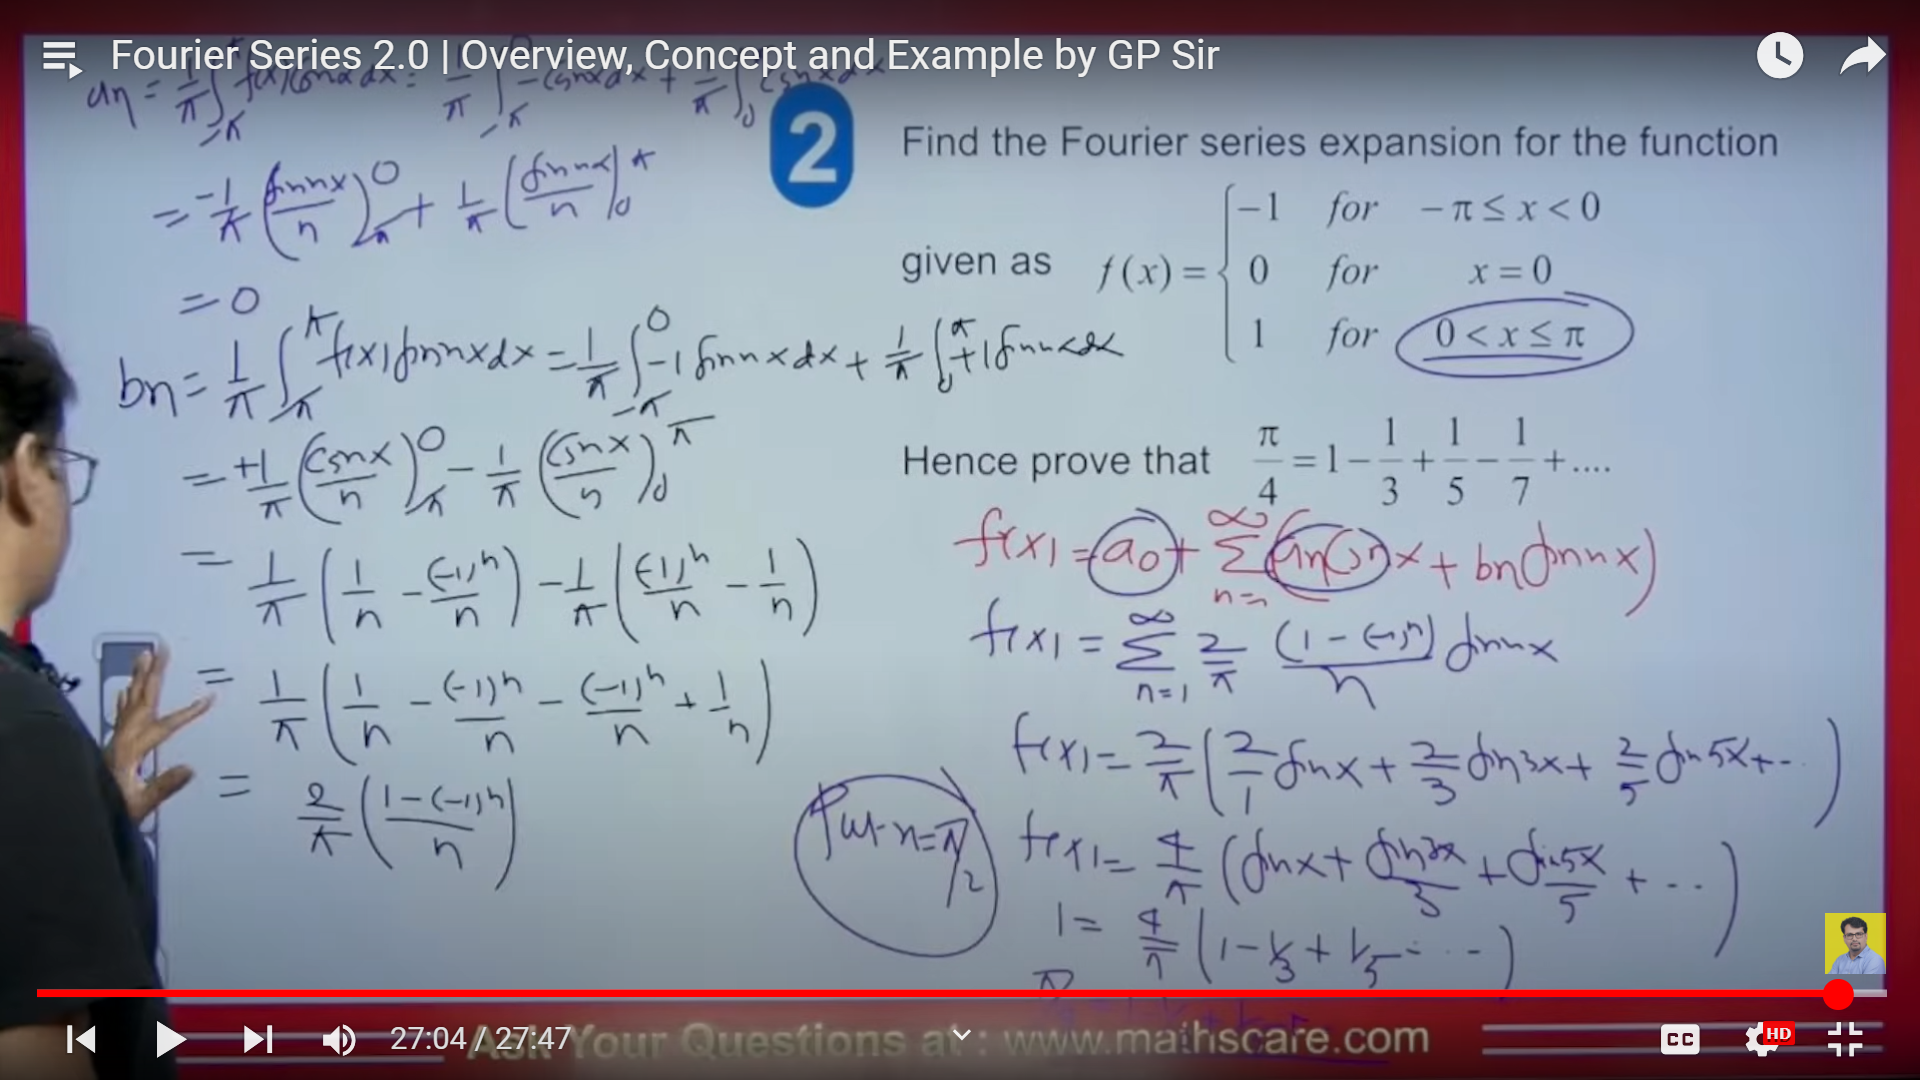 Fourier Series 2.0 | Overview, Concept and Example by GP Sir
an = 1/π ∫_{-π}^{π} f(x) cosnx dx = 1/π ∫_{-π}^{0} -cosnx dx + 1/π ∫_{0} cosnx dx
= -1/π (sinnx/n)_{-π}^{0} + 1/π (sinnx/n)_{0}^{π}
= 0
bn = 1/π ∫_{-π}^{π} f(x) sinnx dx = 1/π ∫_{-π}^{0} -1 sinnx dx + 1/π ∫_{0}^{π} +1 sinnx dx
= +1/π (cosnx/n)_{-π}^{0} - 1/π (cosnx/n)_{0}^{π}
= 1/π (1/n - (-1)^n/n) - 1/π ((-1)^n/n - 1/n)
= 1/π (1/n - (-1)^n/n - (-1)^n/n + 1/n)
= 2/π (1-(-1)^n/n)
2
Find the Fourier series expansion for the function
given as f(x) = { -1 for -π ≤ x < 0
0 for x = 0
1 for 0 < x ≤ π
Hence prove that π/4 = 1 - 1/3 + 1/5 - 1/7 + ....
f(x) = a0 + Σ_{n=1}^{∞} (an cosnx + bn sinnx)
f(x) = Σ_{n=1}^{∞} 2/π (1-(-1)^n)/n sinnx
f(x) = 2/π (2/1 sinx + 2/3 sin3x + 2/5 sin5x + ..)
Put x = π/2
f(x) = 4/π (sinx + sin3x/3 + sin5x/5 + ...)
1 = 4/π (1 - 1/3 + 1/5 - ...)
27:04 / 27:47
Ask Your Questions at : www.mathscare.com
CC
HD